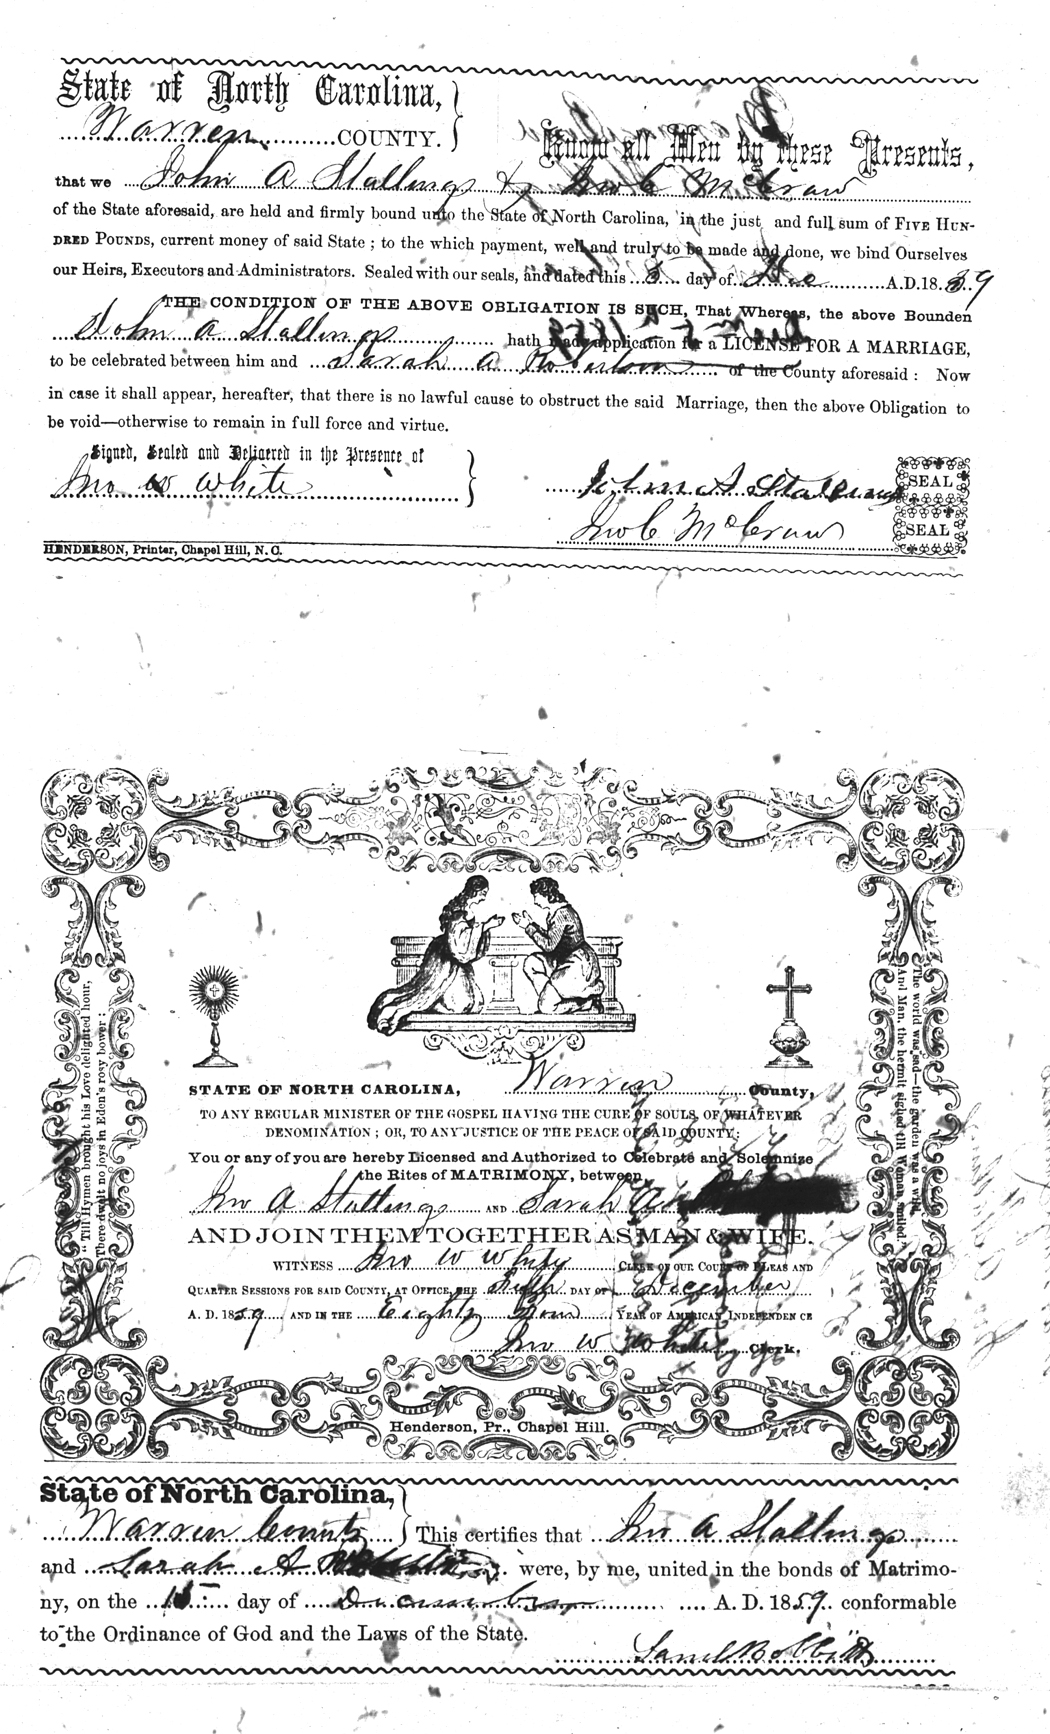 State of North Carolina,
Warren COUNTY.
Know all Men by these Presents,
that we John A Stallings & Jno C McCraw
of the State aforesaid, are held and firmly bound unto the State of North Carolina, in the just and full sum of FIVE HUN-
DRED POUNDS, current money of said State ; to the which payment, well and truly to be made and done, we bind Ourselves
our Heirs, Executors and Administrators. Sealed with our seals, and dated this 5 day of Dec A.D. 1859
THE CONDITION OF THE ABOVE OBLIGATION IS SUCH, That Whereas, the above Bounden
John A Stallings hath made application for a LICENSE FOR A MARRIAGE,
to be celebrated between him and Sarah A of the County aforesaid : Now
in case it shall appear, hereafter, that there is no lawful cause to obstruct the said Marriage, then the above Obligation to
be void—otherwise to remain in full force and virtue.
Signed, Sealed and Delivered in the Presence of
Jno W White
John A Stallings SEAL
Jno C McCraw SEAL
HENDERSON, Printer, Chapel Hill, N. C.
"Till Hymen brought his Love delighted hour,
There dwelt no joys in Eden's rosy bower :
The world was sad—the garden was a wild,
And Man, the hermit, sighed till Woman smiled.
STATE OF NORTH CAROLINA, Warren County,
TO ANY REGULAR MINISTER OF THE GOSPEL HAVING THE CURE OF SOULS, OF WHATEVER
DENOMINATION ; OR, TO ANY JUSTICE OF THE PEACE OF SAID COUNTY:
You or any of you are hereby Licensed and Authorized to Celebrate and Solemnize
the Rites of MATRIMONY, between
Jno A Stallings AND Sarah A
AND JOIN THEM TOGETHER AS MAN & WIFE.
WITNESS Jno W White CLERK OF OUR COURT OF PLEAS AND
QUARTER SESSIONS FOR SAID COUNTY, AT OFFICE, THE Fifth DAY OF December
A. D. 1859 AND IN THE Eighty Four YEAR OF AMERICAN INDEPENDENCE
Jno W White Clerk.
Henderson, Pr., Chapel Hill.
State of North Carolina,
Warren County This certifies that Jno A Stallings
and Sarah A were, by me, united in the bonds of Matrimo-
ny, on the 15 day of December A. D. 1859 conformable
to the Ordinance of God and the Laws of the State.
Saml Bobbitt